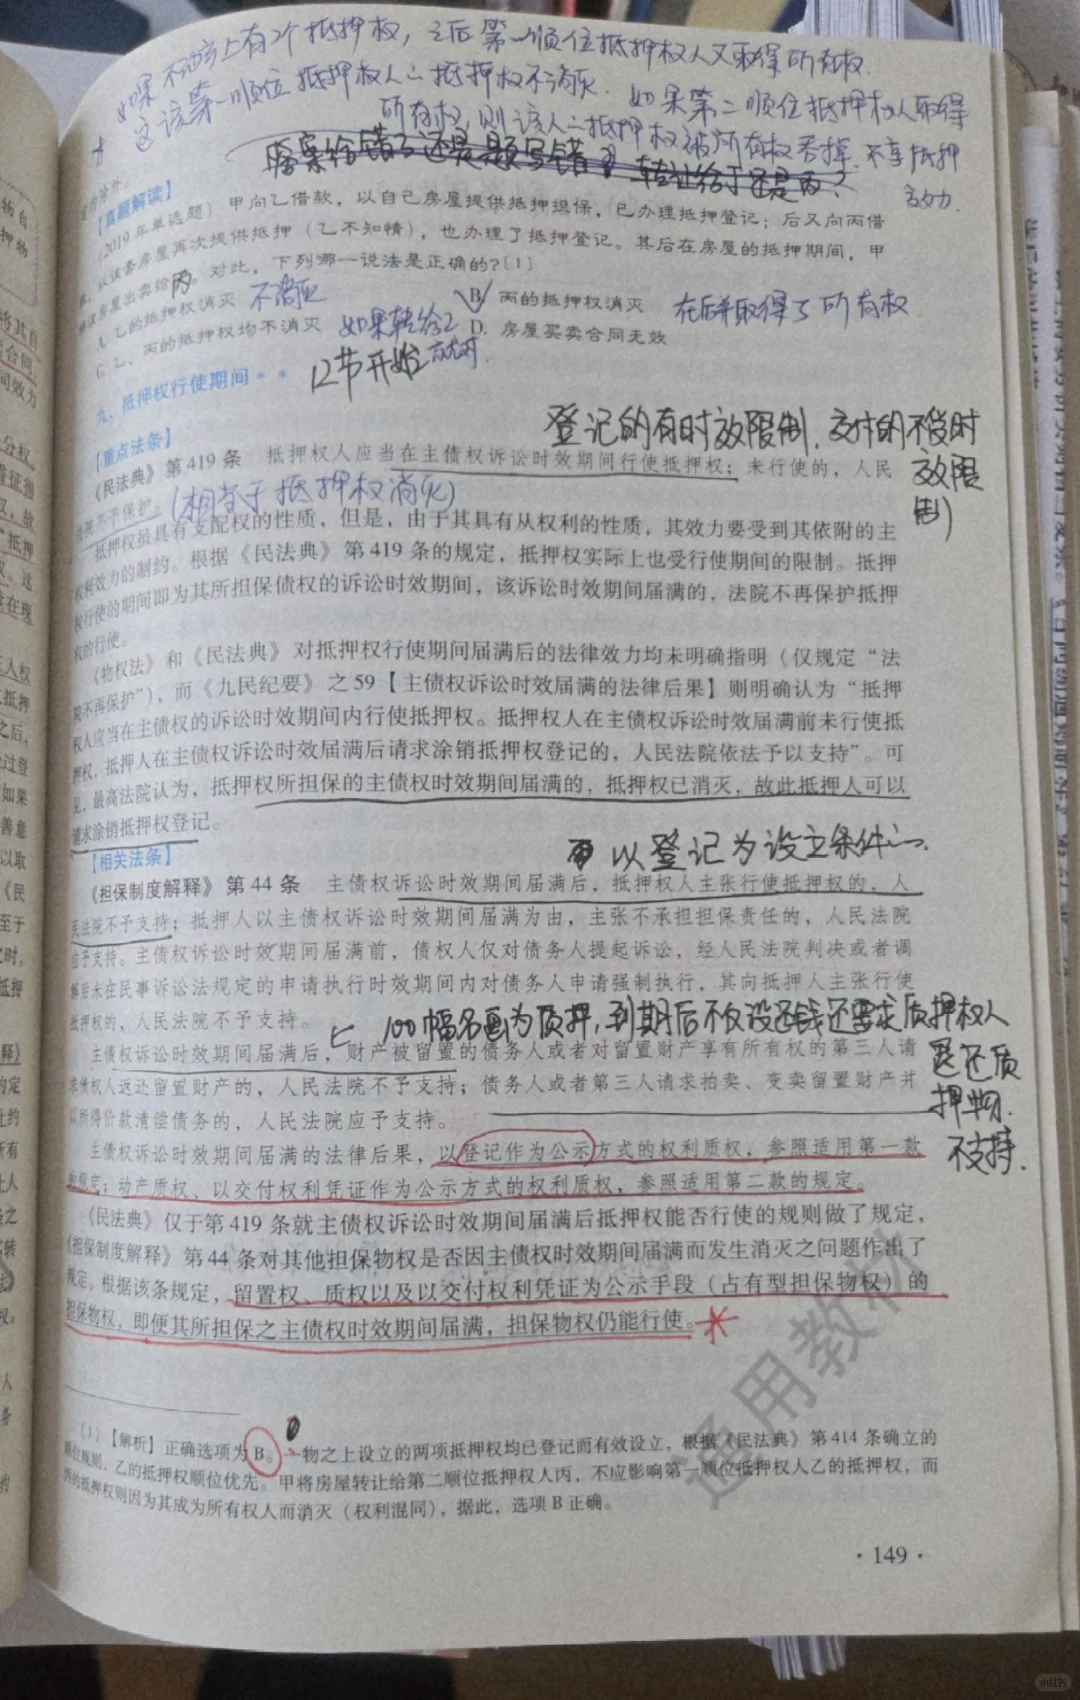 如果不动产上有2个抵押权，之后第一顺位抵押权人又取得所有权，
这该第一顺位抵押权人的抵押权不消灭. 如果第二顺位抵押权人取得
所有权，则该人的抵押权被所有权吞掉. 不享抵押
效力.
答案给错了还是题写错了 转让给丁还是丙？
【真题解读】
（2019年单选题）甲向乙借款，以自己房屋提供抵押担保，已办理抵押登记；后又向丙借
，以该套房屋再次提供抵押（乙不知情），也办理了抵押登记。其后在房屋的抵押期间，甲
将该房屋出卖给丙。对此，下列哪一说法是正确的？〔1〕
A. 乙的抵押权消灭 不消灭 B. 丙的抵押权消灭 在后并取得了所有权
C. 乙、丙的抵押权均不消灭 如果转给乙 D. 房屋买卖合同无效
12节开始
九、抵押权行使期间**
登记的有时效限制，交付的不受时
效限
制）
【重点法条】
《民法典》第419条 抵押权人应当在主债权诉讼时效期间行使抵押权；未行使的，人民
法院不予保护。（相当于抵押权消灭）
抵押权虽具有支配权的性质，但是，由于其具有从权利的性质，其效力要受到其依附的主
权利效力的制约。根据《民法典》第419条的规定，抵押权实际上也受行使期间的限制。抵押
权行使的期间即为其所担保债权的诉讼时效期间，该诉讼时效期间届满的，法院不再保护抵押
权的行使。
《物权法》和《民法典》对抵押权行使期间届满后的法律效力均未明确指明（仅规定“法
院不再保护”），而《九民纪要》之59【主债权诉讼时效届满的法律后果】则明确认为“抵押
权人应当在主债权的诉讼时效期间内行使抵押权。抵押权人在主债权诉讼时效届满前未行使抵
押权，抵押人在主债权诉讼时效届满后请求涂销抵押权登记的，人民法院依法予以支持”。可
见，最高法院认为，抵押权所担保的主债权时效期间届满的，抵押权已消灭，故此抵押人可以
请求涂销抵押权登记。
【相关法条】
以登记为设立条件的.
《担保制度解释》第44条 主债权诉讼时效期间届满后，抵押权人主张行使抵押权的，人
民法院不予支持；抵押人以主债权诉讼时效期间届满为由，主张不承担担保责任的，人民法院
应予支持。主债权诉讼时效期间届满前，债权人仅对债务人提起诉讼，经人民法院判决或者调
解后未在民事诉讼法规定的申请执行时效期间内对债务人申请强制执行，其向抵押人主张行使
抵押权的，人民法院不予支持。
100幅名画为质押，到期后不仅没还钱还要求质押权人
退还质
押物.
不支持.
主债权诉讼时效期间届满后，财产被留置的债务人或者对留置财产享有所有权的第三人请
求债权人返还留置财产的，人民法院不予支持；债务人或者第三人请求拍卖、变卖留置财产并
以所得价款清偿债务的，人民法院应予支持。
主债权诉讼时效期间届满的法律后果，以登记作为公示方式的权利质权，参照适用第一款
的规定；动产质权、以交付权利凭证作为公示方式的权利质权，参照适用第二款的规定。
《民法典》仅于第419条就主债权诉讼时效期间届满后抵押权能否行使的规则做了规定，
《担保制度解释》第44条对其他担保物权是否因主债权时效期间届满而发生消灭之问题作出了
规定。根据该条规定，留置权、质权以及以交付权利凭证为公示手段（占有型担保物权）的
担保物权，即便其所担保之主债权时效期间届满，担保物权仍能行使。
通用教材
〔1〕【解析】正确选项为B。一物之上设立的两项抵押权均已登记而有效设立，根据《民法典》第414条确立的
顺位规则，乙的抵押权顺位优先。甲将房屋转让给第二顺位抵押权人丙，不应影响第一顺位抵押权人乙的抵押权，而
丙的抵押权则因为其成为所有权人而消灭（权利混同），据此，选项B正确。
·149·
小红书